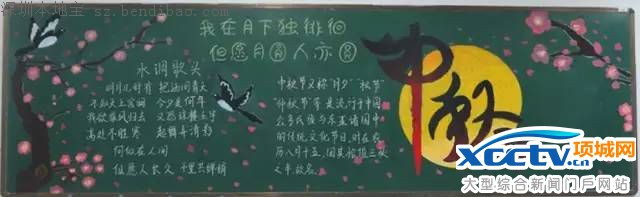 深圳本地宝 sz.bendibao.com
我在月下独徘徊
但愿月圆人亦圆
水调歌头
明月几时有 把酒问青天
不知天上宫阙 今夕是何年
我欲乘风归去 又恐琼楼玉宇
高处不胜寒 起舞弄清影
何似在人间
但愿人长久 千里共婵娟
中秋节又称"月夕""秋节"
"仲秋节"等是流行于中国
众多民族与东亚诸国中
的传统文化节日,时在农
历八月十五,因其恰值三秋
之半,故名。
中秋
XCCTV.cn 项城网
大型综合新闻门戶网站